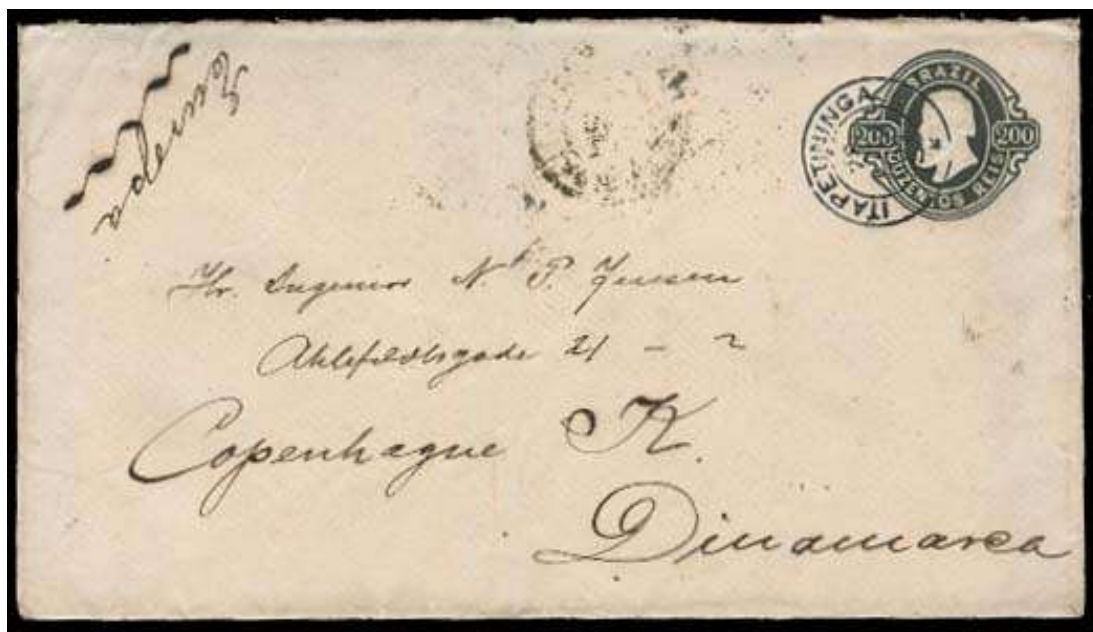 Europa
ITAPETININGA
BRAZIL
200 200
DUZENTOS REIS
Hr. Ingeniør N. P. Jensen
Ahlefeldtsgade 21 - 2
Copenhague K.
Dinamarca